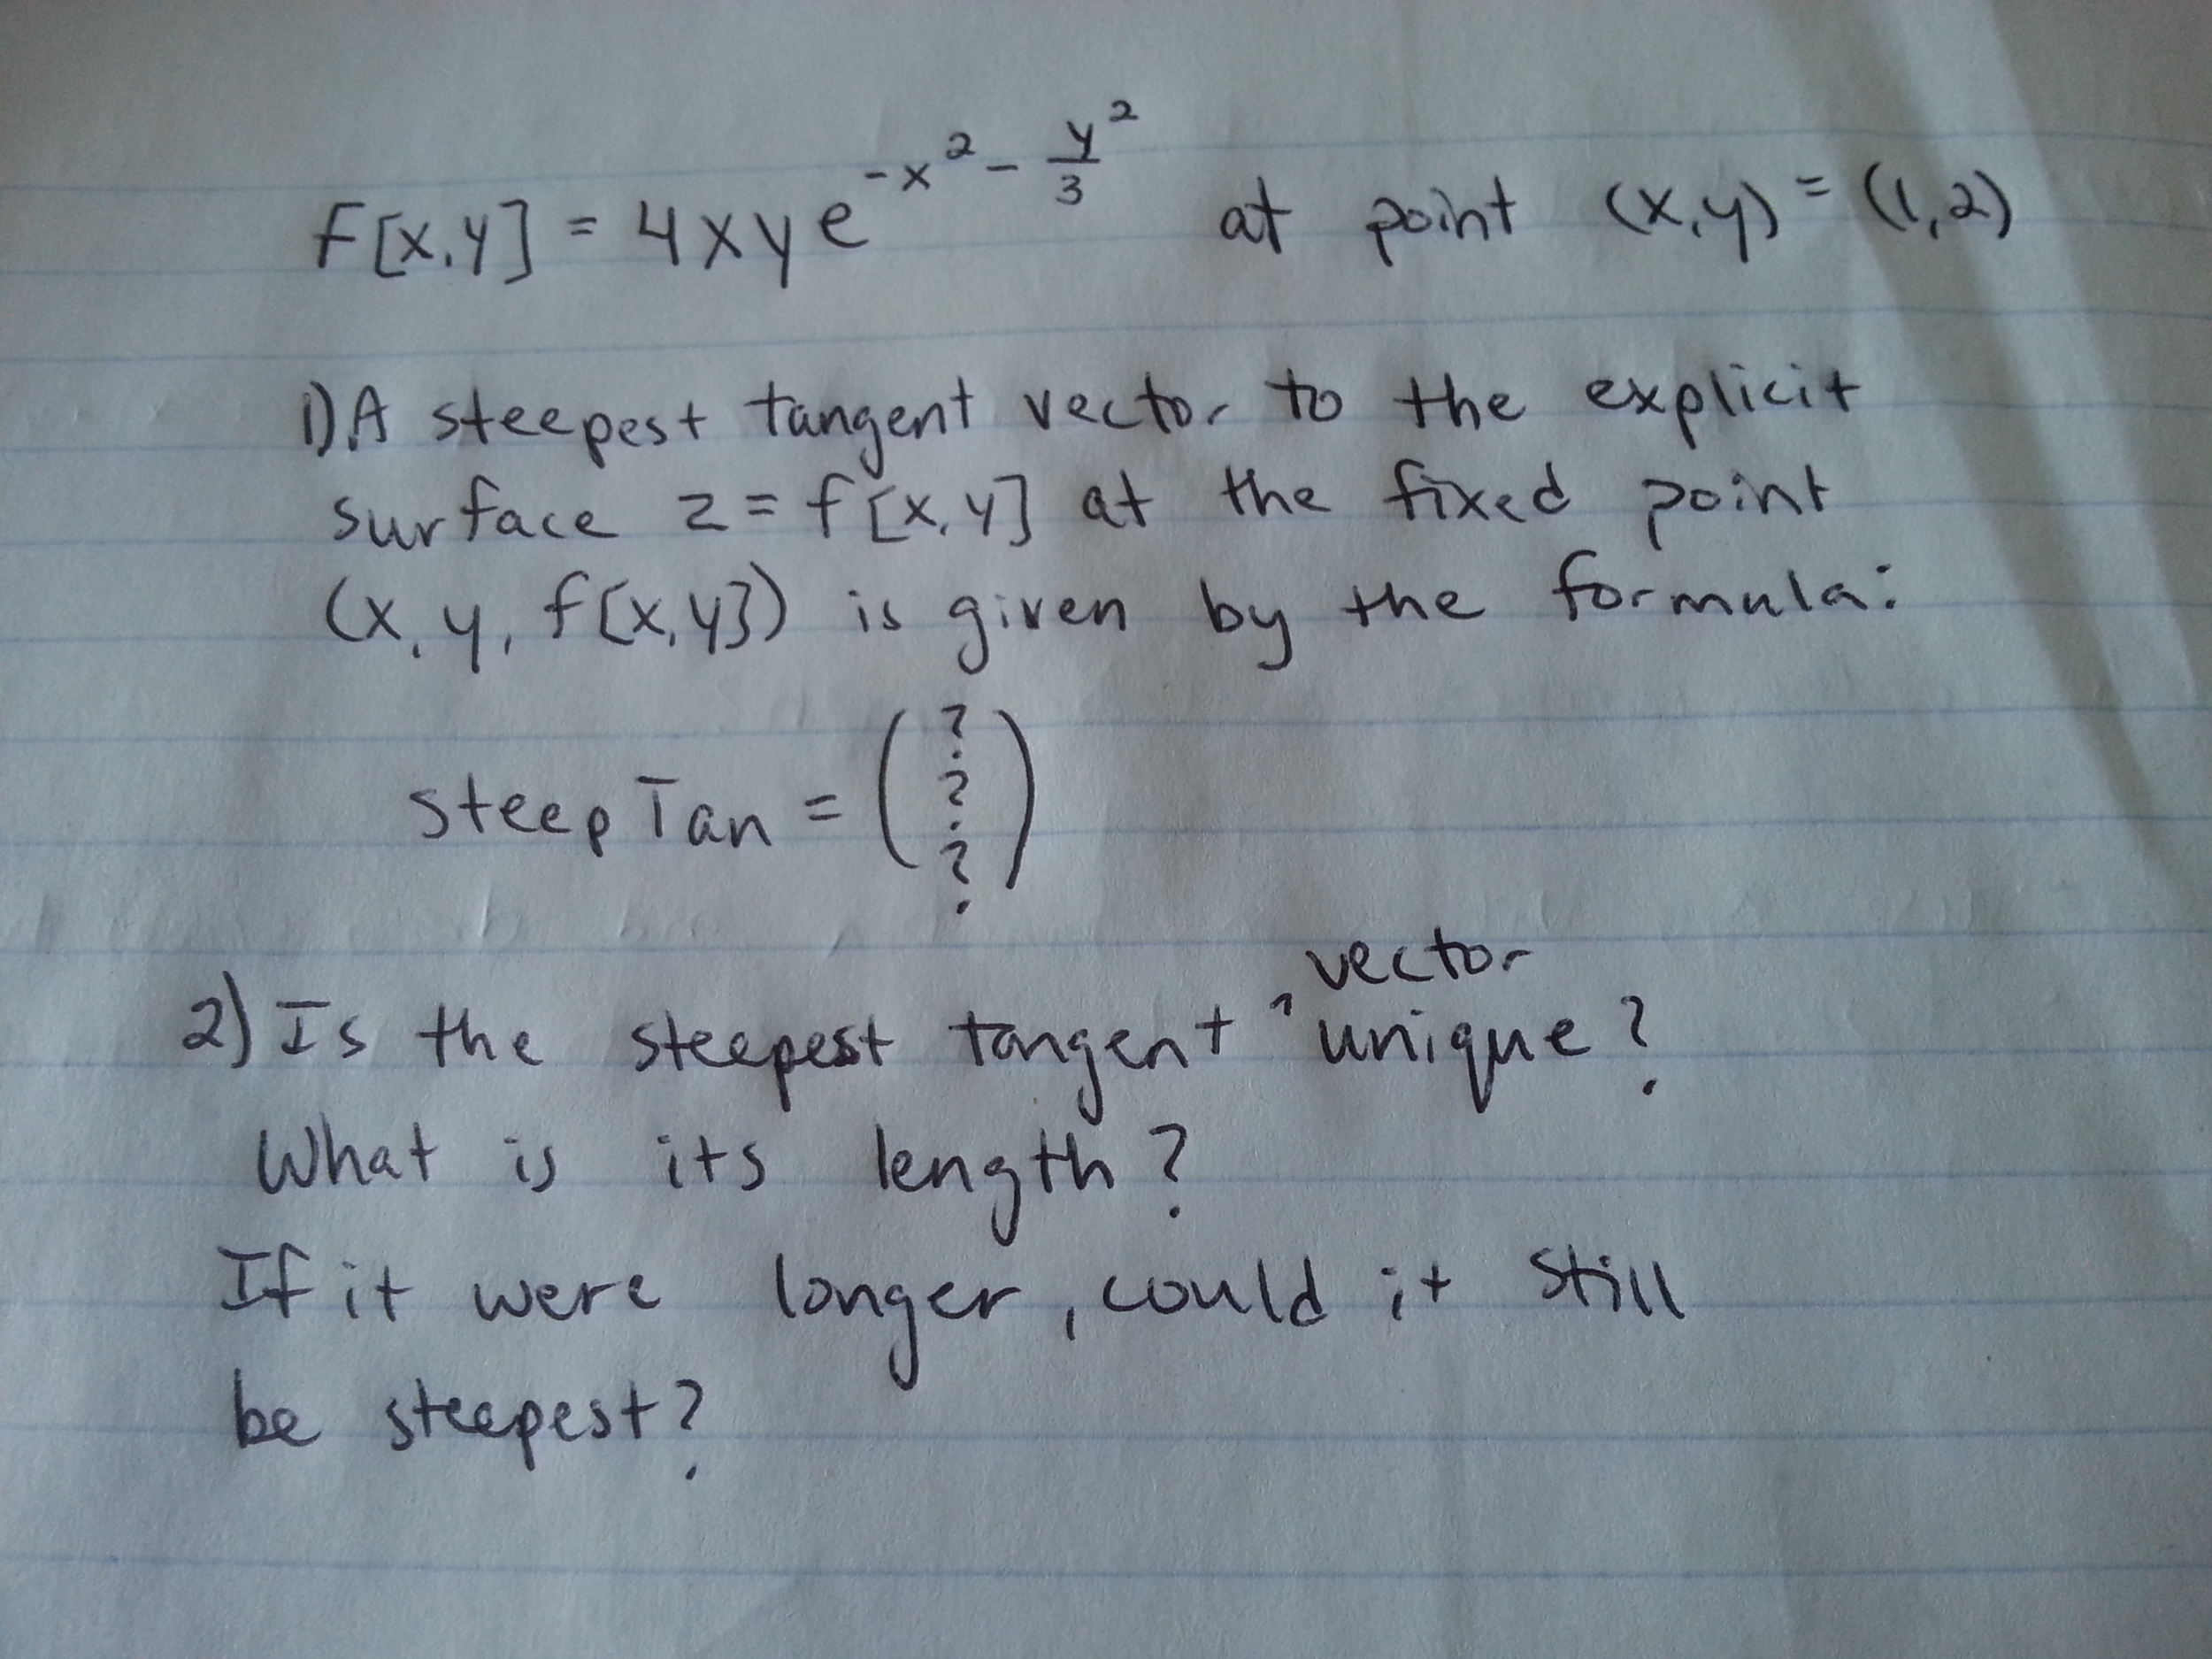 f[x,y] = 4xye^{-x^2 - \frac{y^2}{3}} at point (x,y) = (1,2)
1) A steepest tangent vector to the explicit
surface z = f[x,y] at the fixed point
(x, y, f[x,y]) is given by the formula:
steepTan = (? ? ?)
2) Is the steepest tangent ^ vector unique?
What is its length?
If it were longer, could it still
be steepest?